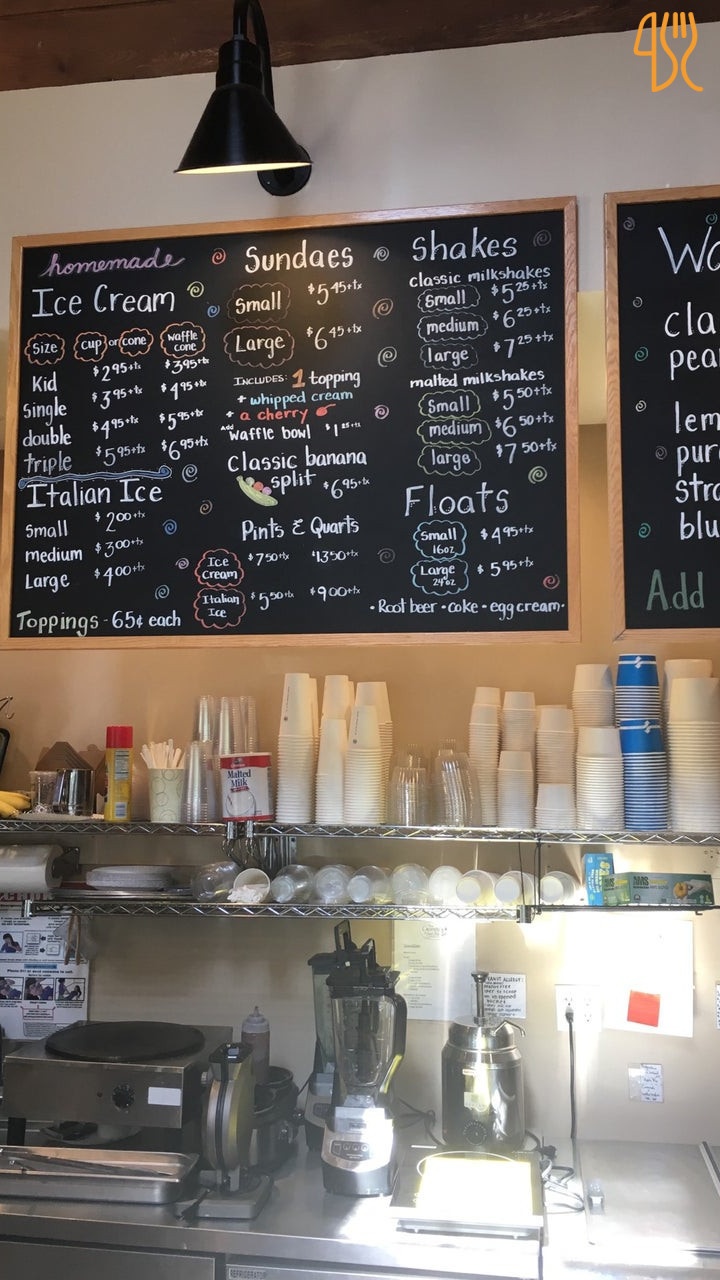 homemade
Ice Cream
Size cup or cone waffle cone
Kid $2.95+tx $3.95+tx
Single $3.95+tx $4.95+tx
double $4.95+tx $5.95+tx
triple $5.95+tx $6.95+tx
Italian Ice
Small $2.00+tx
medium $3.00+tx
Large $4.00+tx
Toppings - 65¢ each
Sundaes
Small $5.45+tx
Large $6.45+tx
INCLUDES: 1 topping
+ whipped cream
+ a cherry
Add waffle bowl $1.25+tx
Classic banana
split $6.95+tx
Pints & Quarts
Ice Cream $7.50+tx $13.50+tx
Italian Ice $5.50+tx $9.00+tx
Shakes
classic milkshakes
Small $5.25+tx
medium $6.25+tx
large $7.25+tx
malted milkshakes
Small $5.50+tx
medium $6.50+tx
large $7.50+tx
Floats
Small 16oz $4.95+tx
Large 24oz $5.95+tx
• Root beer • coke • egg cream •
Wa
cla
pea
lem
pur
stra
blu
Add
Malted
Milk
REFRIGERATOR